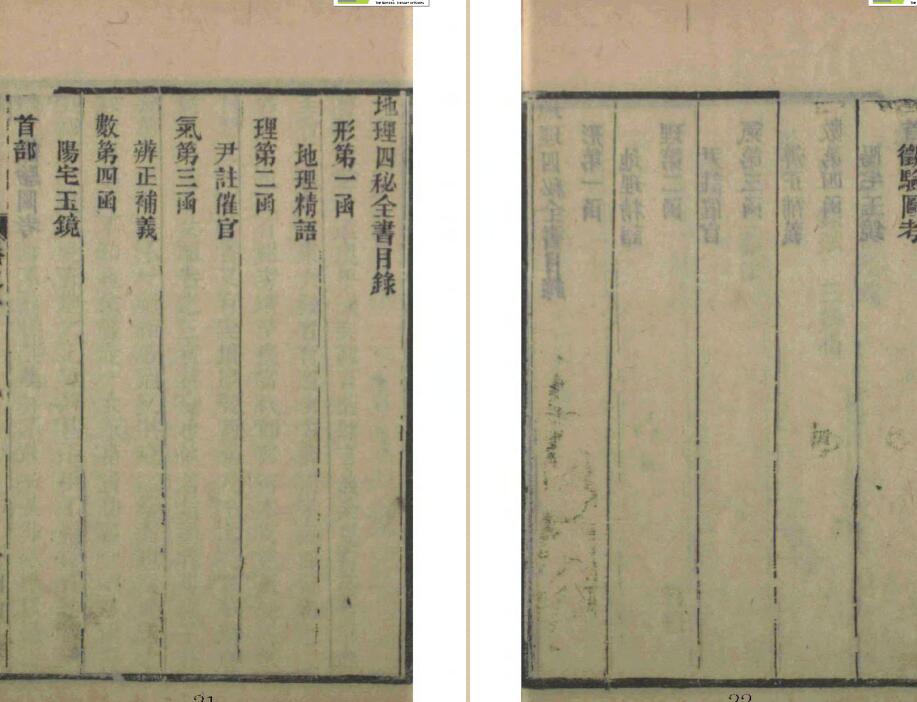 地理四秘全書目錄
形第一函
地理精語
理第二函
尹註催官
氣第三函
辨正補義
數第四函
陽宅玉鏡
首部
徵驗圖考
21
22